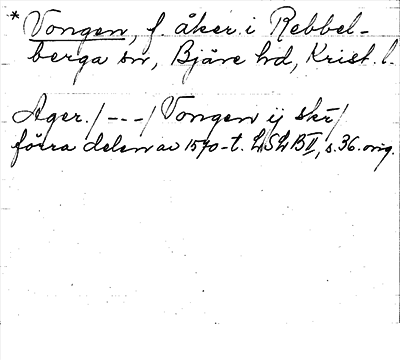 * Vongen, f. åker i Rebbel-
berga sn, Bjäre hd, Krist. l.
Ager. /---/ Vongen ij skr/
förra delen av 1570-t. LSLB II, s. 36. orig.